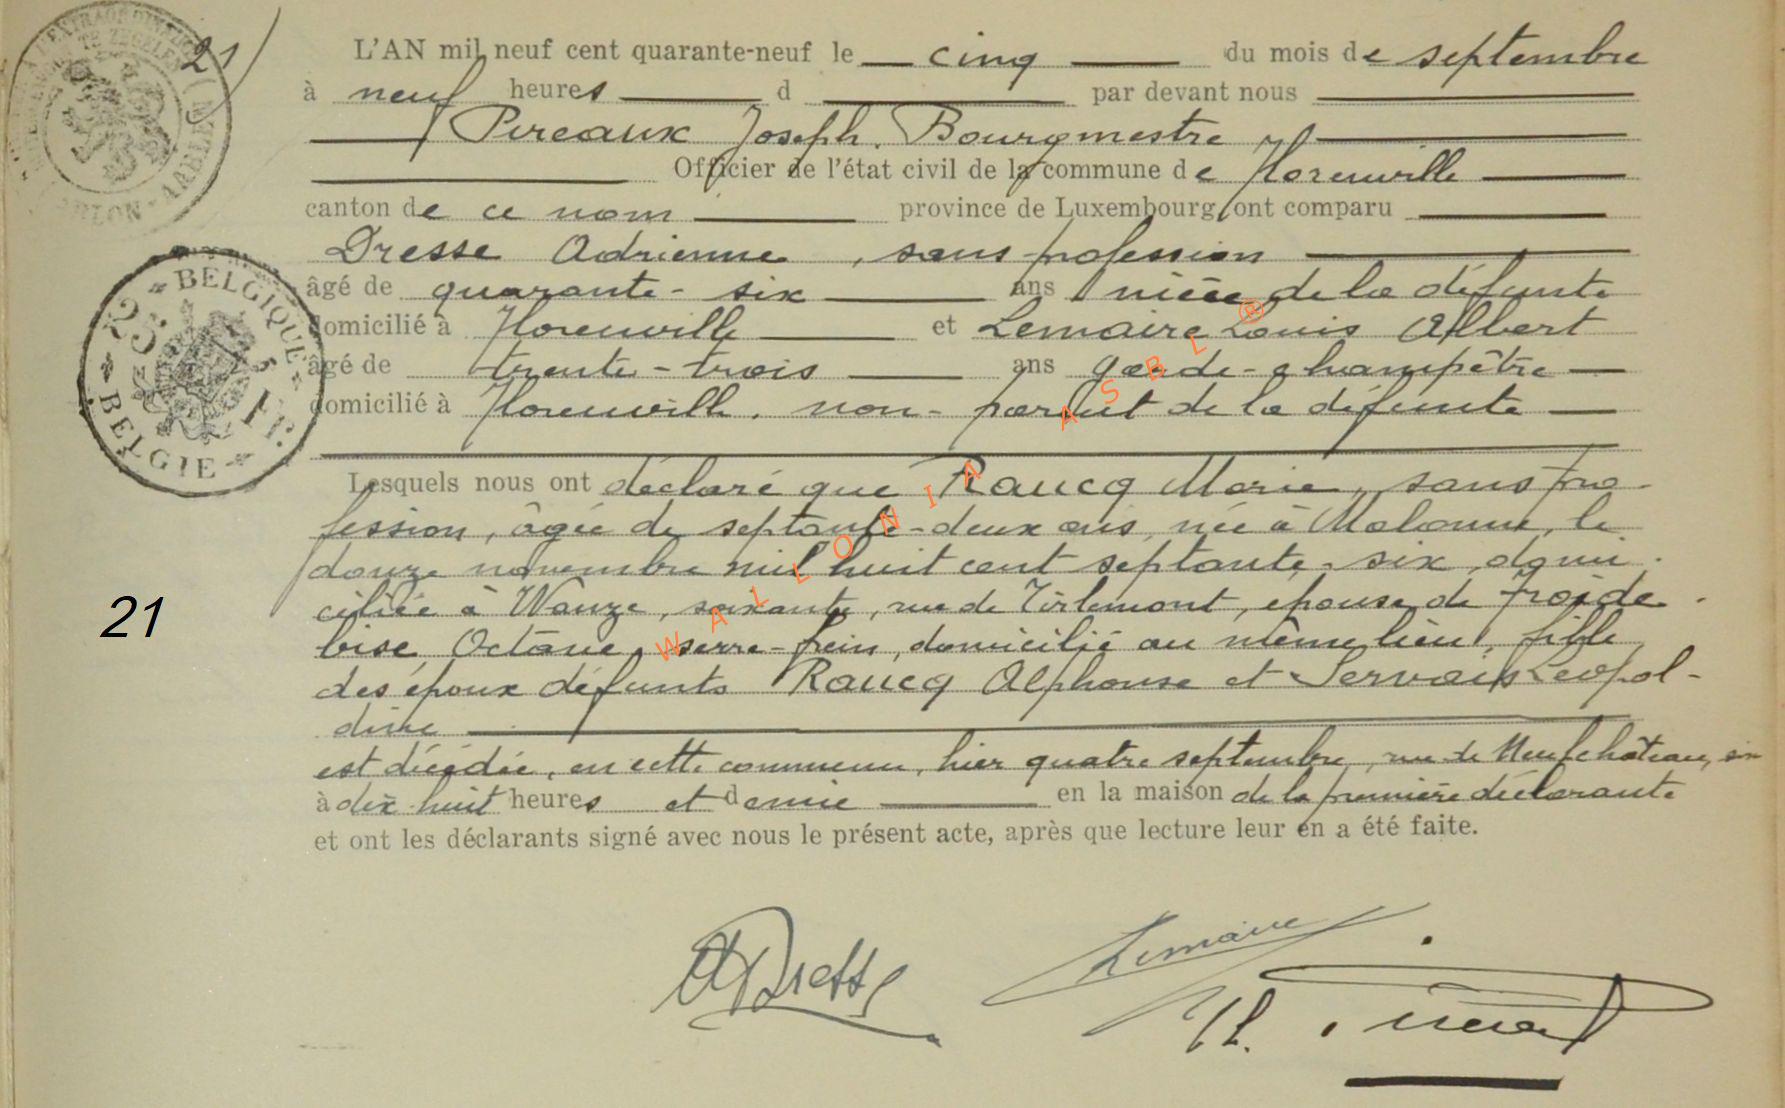 21
L'AN mil neuf cent quarante-neuf le cinq du mois de septembre
à neuf heures d par devant nous
Pireaux Joseph. Bourgmestre
Officier de l'état civil de la commune de Florenville
canton de ce nom province de Luxembourg, ont comparu
Dresse Adrienne, sans profession
âgé de quarante-six ans nièce de la défunte
domicilié à Florenville et Lemaire Louis Albert
âgé de trente-trois ans garde-champêtre
domicilié à Florenville, non-parent de la défunte
Lesquels nous ont déclaré que Raucq Marie, sans pro-
fession, âgée de septante-deux ans, née à Malonne, le
douze novembre mil huit cent septante-six, domi-
ciliée à Wanze, soixante, rue de Tirlemont, épouse de Froide-
bise Octave, serre-frein, domicilié au même lieu, fille
des époux défunts Raucq Alphonse et Servais Léopol-
dine
est décédée, en cette commune, hier quatre septembre, rue de Neufchâteau,
à dix-huit heures et demie en la maison de la première déclarante
et ont les déclarants signé avec nous le présent acte, après que lecture leur en a été faite.
21
BELGIQUE
BELGIE
5 Fr.
ARLON - AARLEN
WALLONIA ASBL ®
ADresse
Lemaire